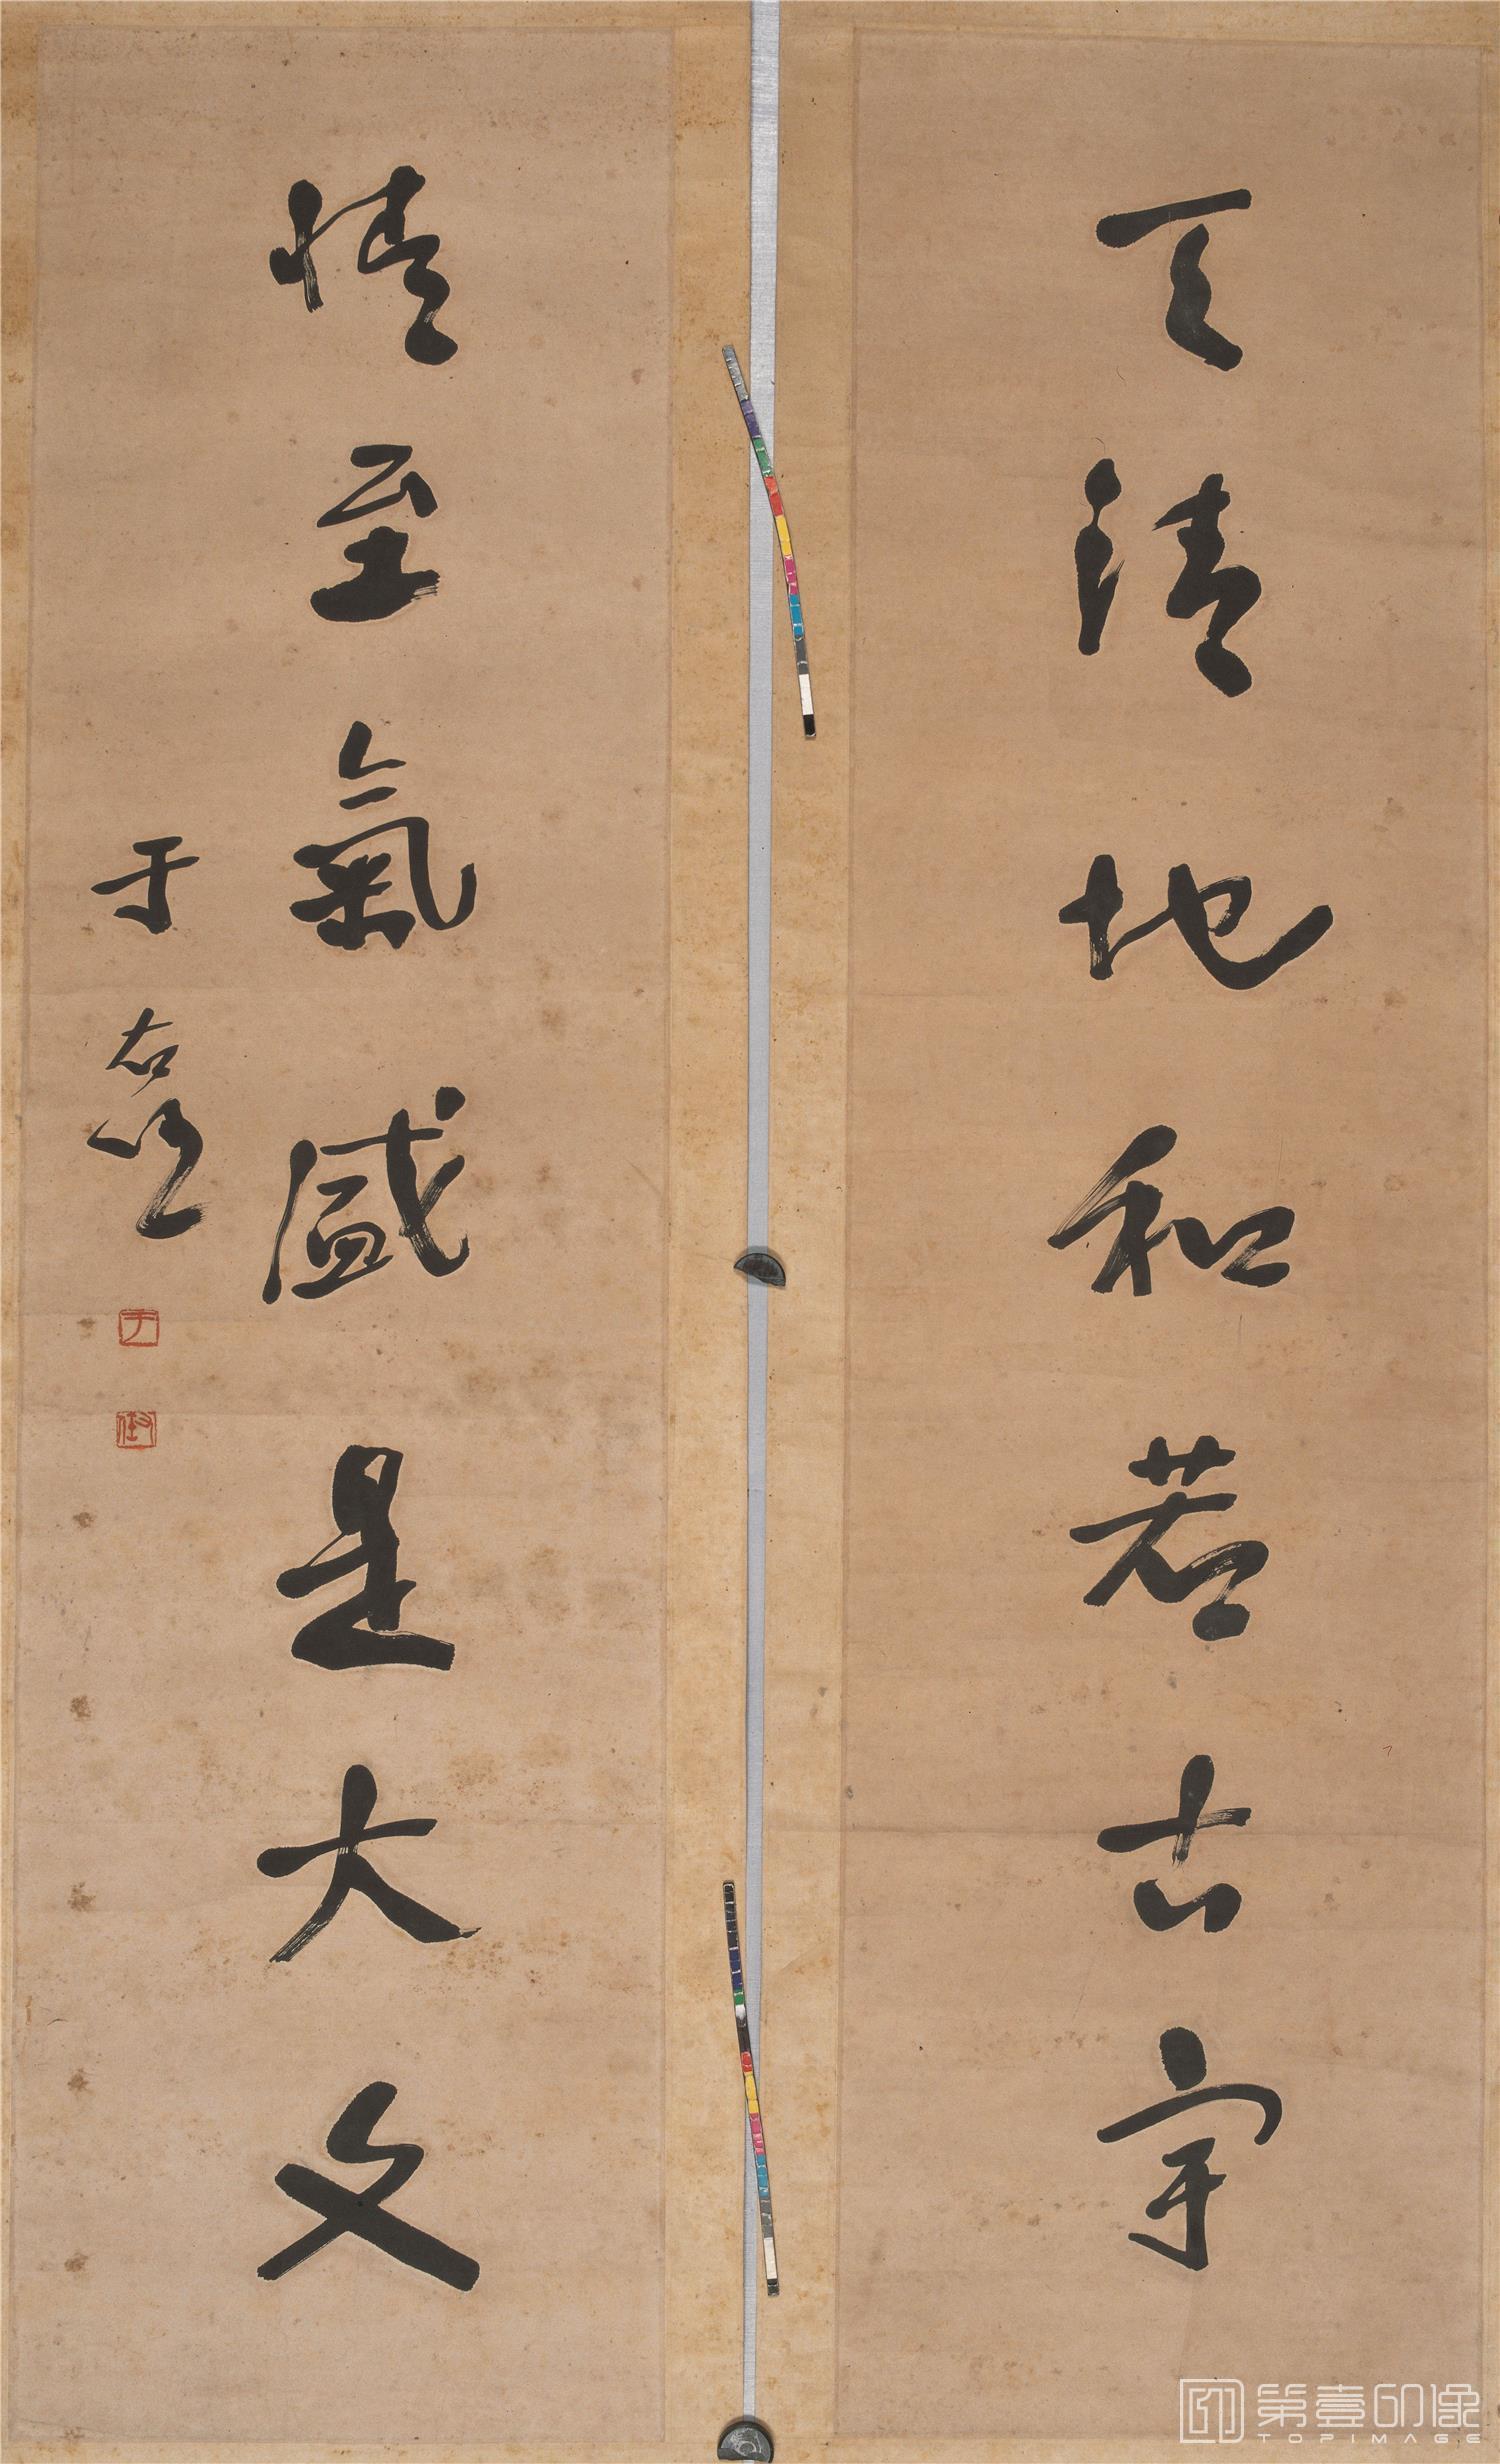 天清地和若古宇
情至氣盛是大文
于右任
于
第壹印像
TOPIMAGE